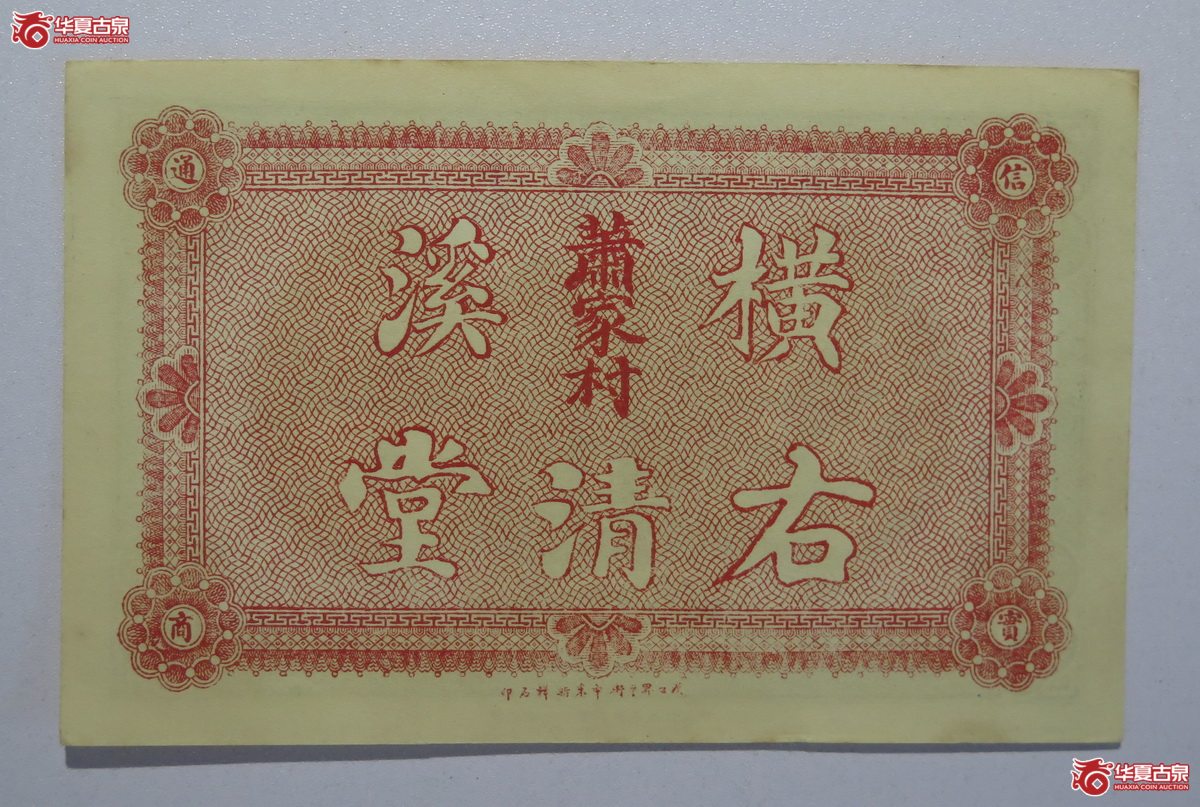 华夏古泉
HUAXIA COIN AUCTION
信 通
橫溪
蕭家村
右清堂
實 商
华夏古泉
HUAXIA COIN AUCTION